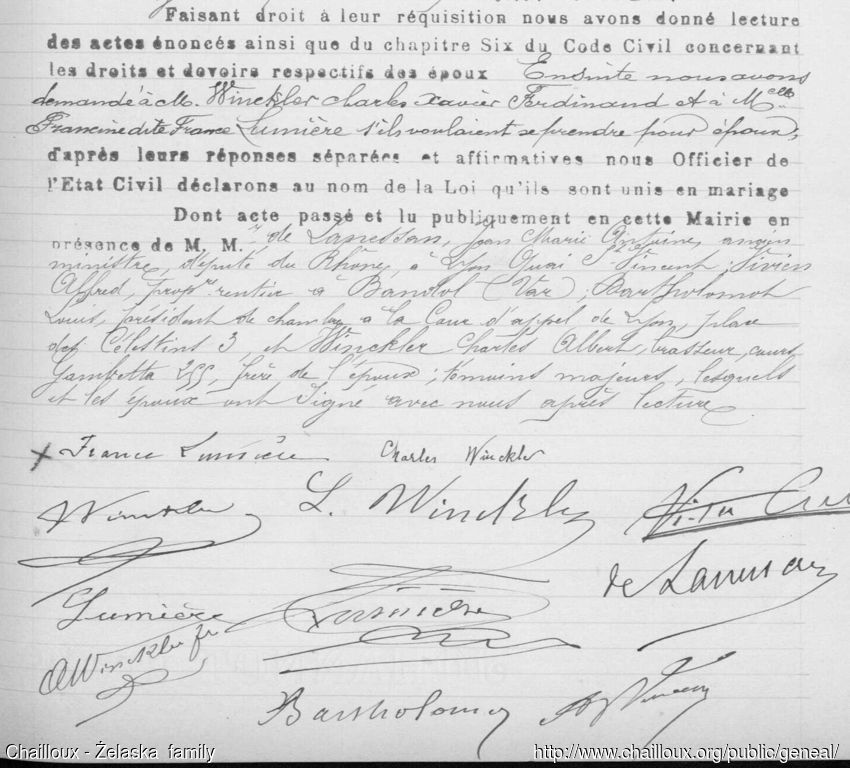 Faisant droit à leur réquisition nous avons donné lecture
des actes énoncés ainsi que du chapitre Six du Code Civil concernant
les droits et devoirs respectifs des époux Ensuite nous avons
demandé à M. Winckler Charles Xavier Ferdinand et à Melle
Francine dite France Lumière s'ils voulaient se prendre pour époux,
d'après leurs réponses séparées et affirmatives nous Officier de
l'Etat Civil déclarons au nom de la Loi qu'ils sont unis en mariage
Dont acte passé et lu publiquement en cette Mairie en
présence de M. M. rs de Lanessan, Jean Marie Antoine, ancien
ministre, député du Rhône, à Lyon Quai St Vincent ; Vivien
Alfred, propre rentier à Bandol (Var) ; Bartholomot
Louis, président de chambre à la Cour d'appel de Lyon, place
des Célestins 3, et Winckler Charles Albert, brasseur, cours
Gambetta 255, frère de l'époux ; témoins majeurs, lesquels
et les époux ont signé avec nous après lecture
x France Lumière Charles Winckler
Winckler L. Winckler
de Lanessan
Lumière Lumière
A Winckler fr
Bartholomot
Chailloux - Żelaska family http://www.chailloux.org/public/geneal/